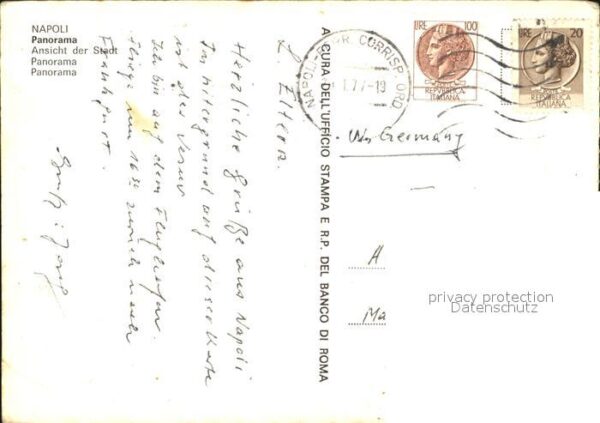 NAPOLI
Panorama
Ansicht der Stadt
Panorama
Panorama
L. Eltern.
Herzliche Grüße aus Napoli
Im Hintergrund auf dieser Karte
ist der Vesuv
Ich bin auf dem Flughafen
fliege um 16³⁰ zurück nach
Frankfurt.
A CURA DELL'UFFICIO STAMPA E R.P. DEL BANCO DI ROMA
CORRISP. ORD
LIRE 100
REPUBBLICA
ITALIANA
LIRE 20
POSTE
REPUBBLICA
ITALIANA
Germany
A
Ma
privacy protection
Datenschutz